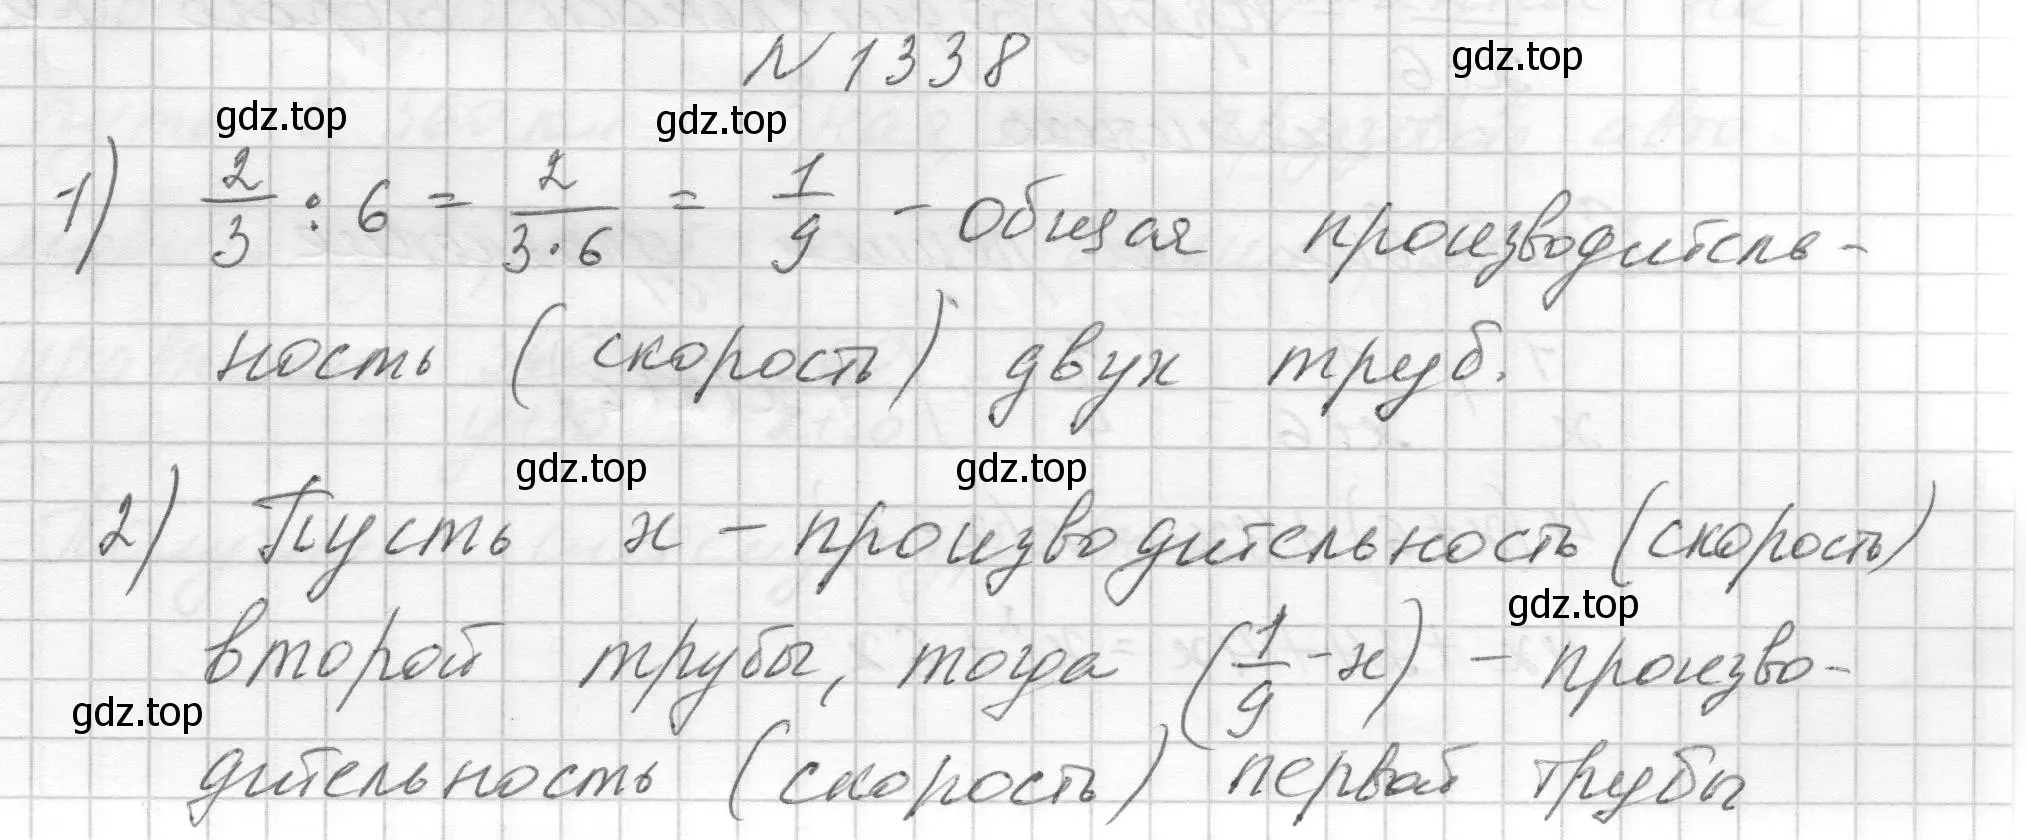 N 1338
1) 2/3 : 6 = 2/(3·6) = 1/9 - общая производитель-
ность (скорость) двух труб.
2) Пусть x - производительность (скорость)
второй трубы, тогда (1/9 - x) - произво-
дительность (скорость) первой трубы
gdz.top
gdz.top
gdz.top
gdz.top
gdz.top
gdz.top
gdz.top